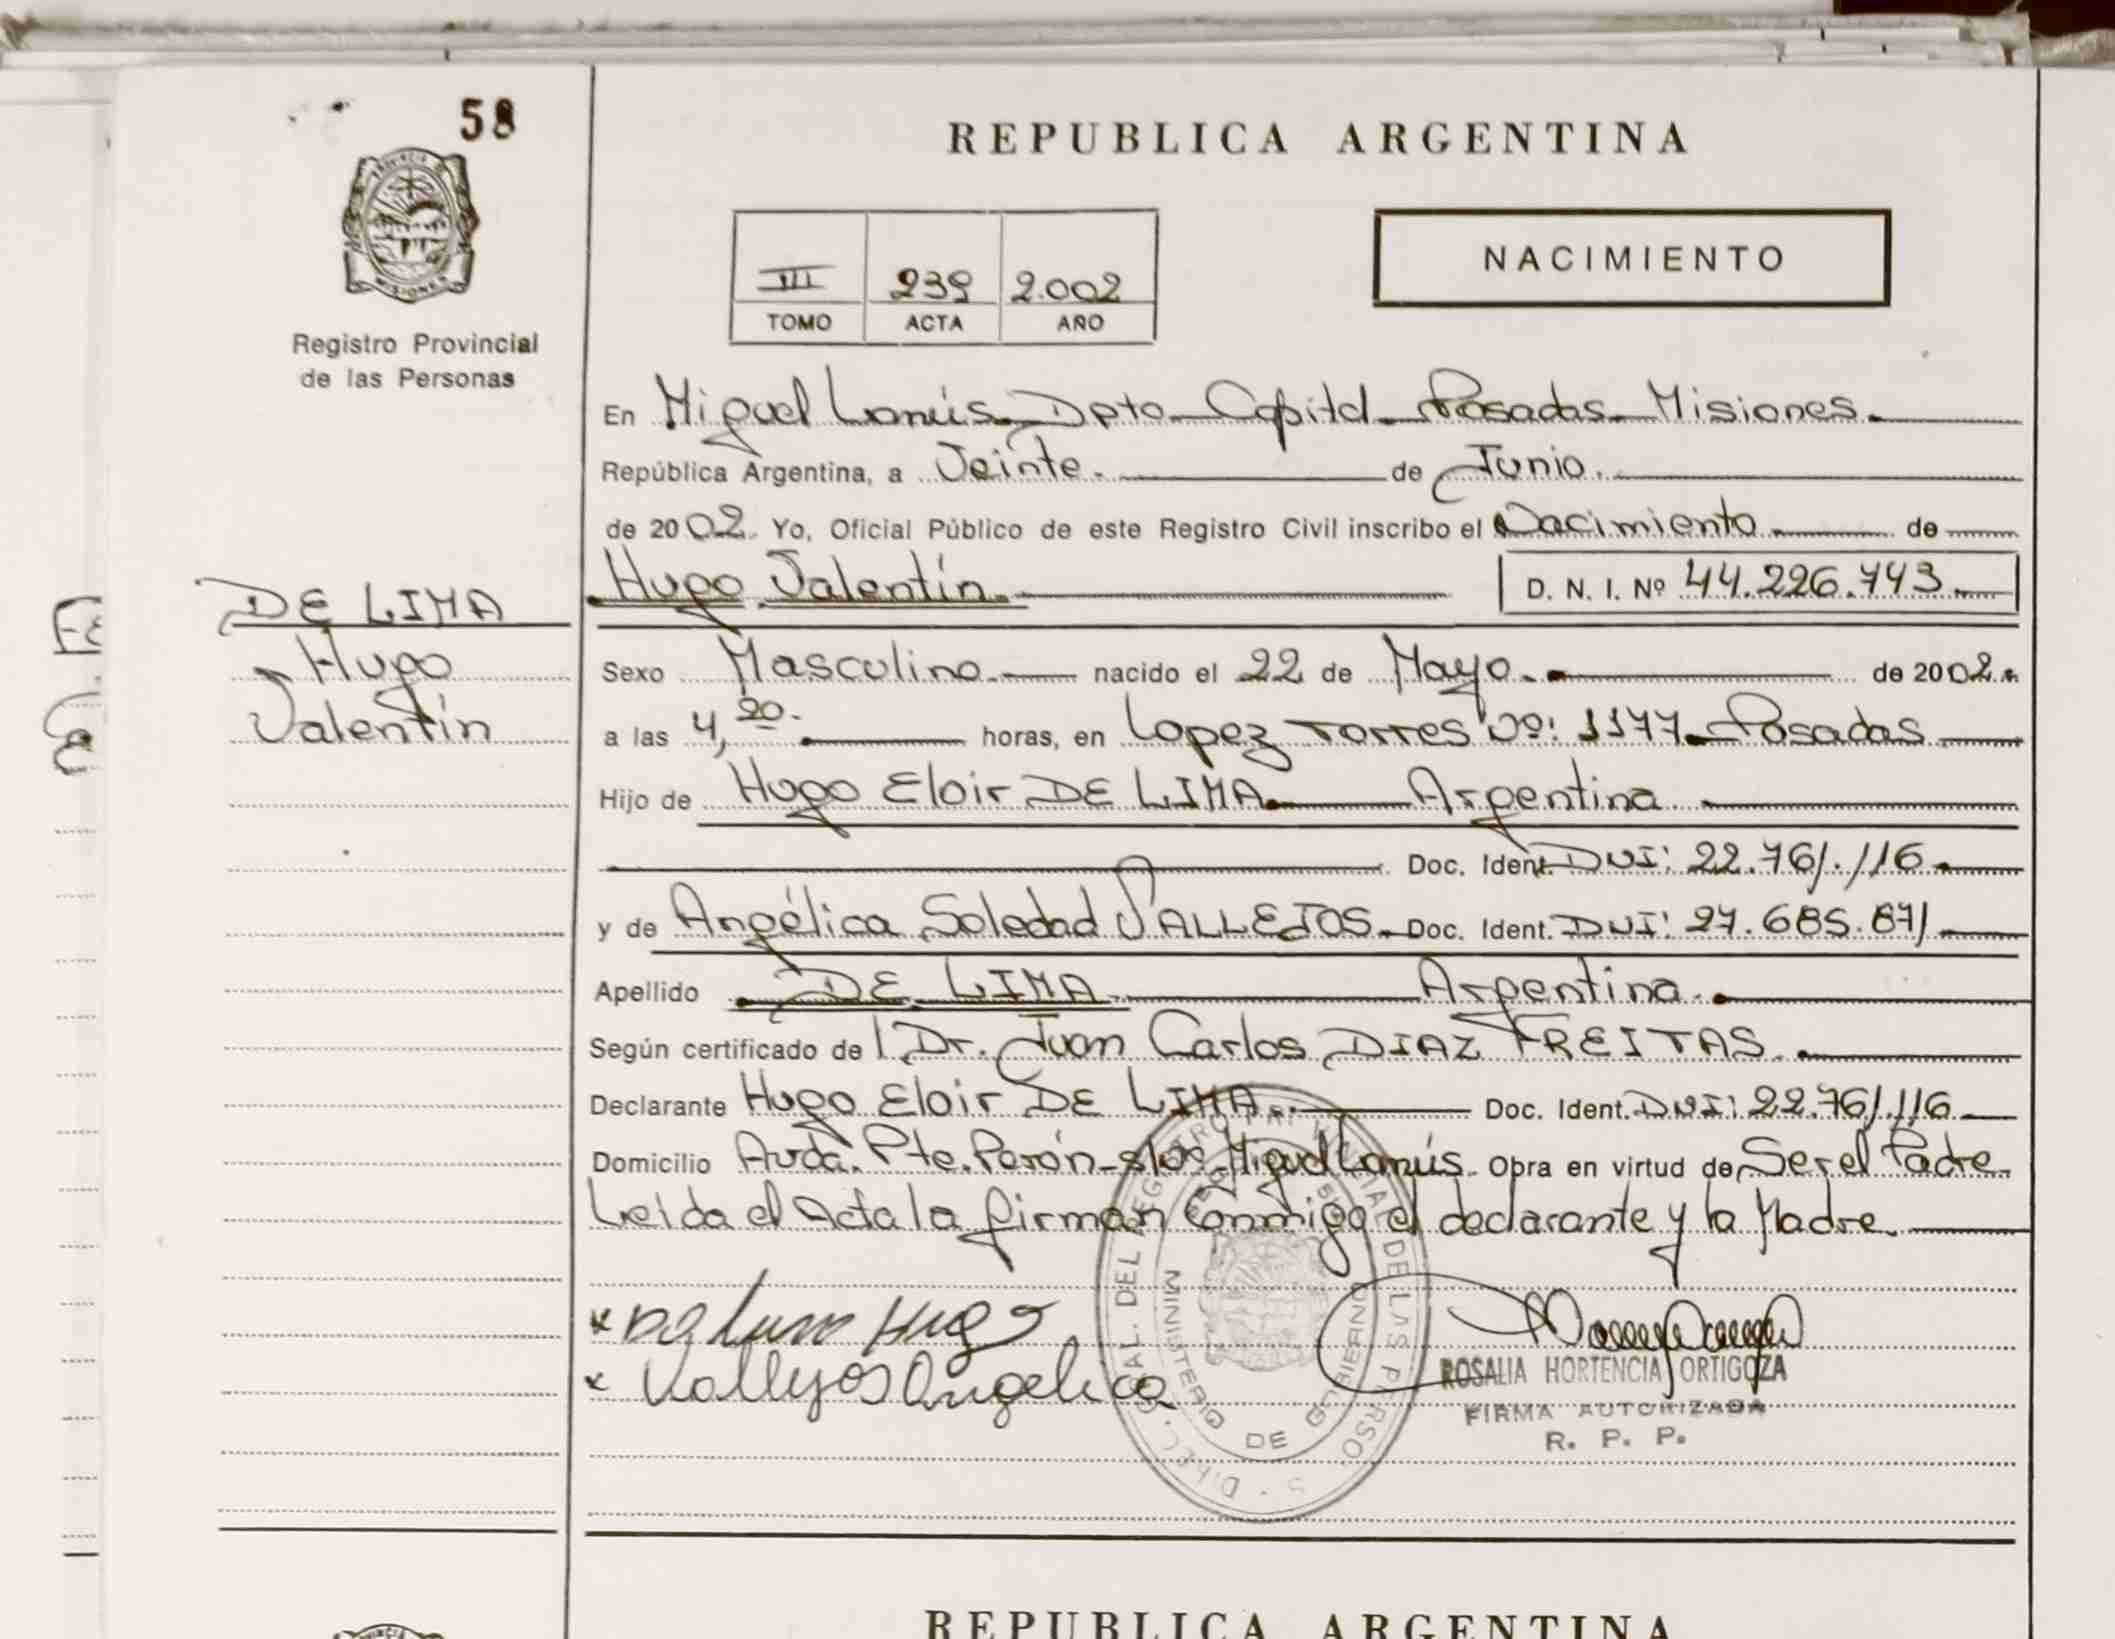 58
REPUBLICA ARGENTINA
NACIMIENTO
III 239 2.002
TOMO ACTA AÑO
Registro Provincial
de las Personas
En Miguel Lanús. Dpto Capital. Posadas. Misiones.
República Argentina, a Veinte. de Junio.
de 2002. Yo, Oficial Público de este Registro Civil inscribo el Nacimiento de
Hugo Valentín. D. N. I. Nº 44.226.743
DE LIMA
Hugo
Valentín
Sexo Masculino. nacido el 22 de Mayo. de 2002.
a las 4,20. horas, en Lopez Torres Nº: 1177. Posadas
Hijo de Hugo Eloir DE LIMA. Argentina
Doc. Ident. DNI: 22.761.116
y de Angélica Soledad VALLEJOS. Doc. Ident. DNI: 27.685.871
Apellido DE LIMA. Argentina.
Según certificado de Dr. Juan Carlos DIAZ FREITAS.
Declarante Hugo Eloir DE LIMA. Doc. Ident. DNI: 22.761.116
Domicilio Avda. Pte. Perón-s/nº Miguel Lanús. Obra en virtud de Ser el Padre
Leída el Acta la firman conmigo el declarante y la Madre.
Hugo
Vallejos Angelica
ROSALIA HORTENCIA ORTIGOZA
FIRMA AUTORIZADA
R. P. P.
MINISTERIO DE GOBIERNO
REPUBLICA ARGENTINA